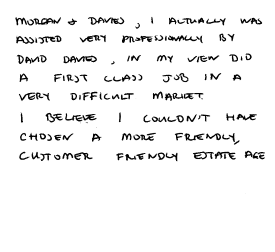 MORGAN & DAVIES, I ACTUALLY WAS
ASSISTED VERY PROFESSIONALLY BY
DAVID DAVIES, IN MY VIEW DID
A FIRST CLASS JOB IN A
VERY DIFFICULT MARKET.
I BELIEVE I COULDN'T HAVE
CHOSEN A MORE FRIENDLY,
CUSTOMER FRIENDLY ESTATE AGE